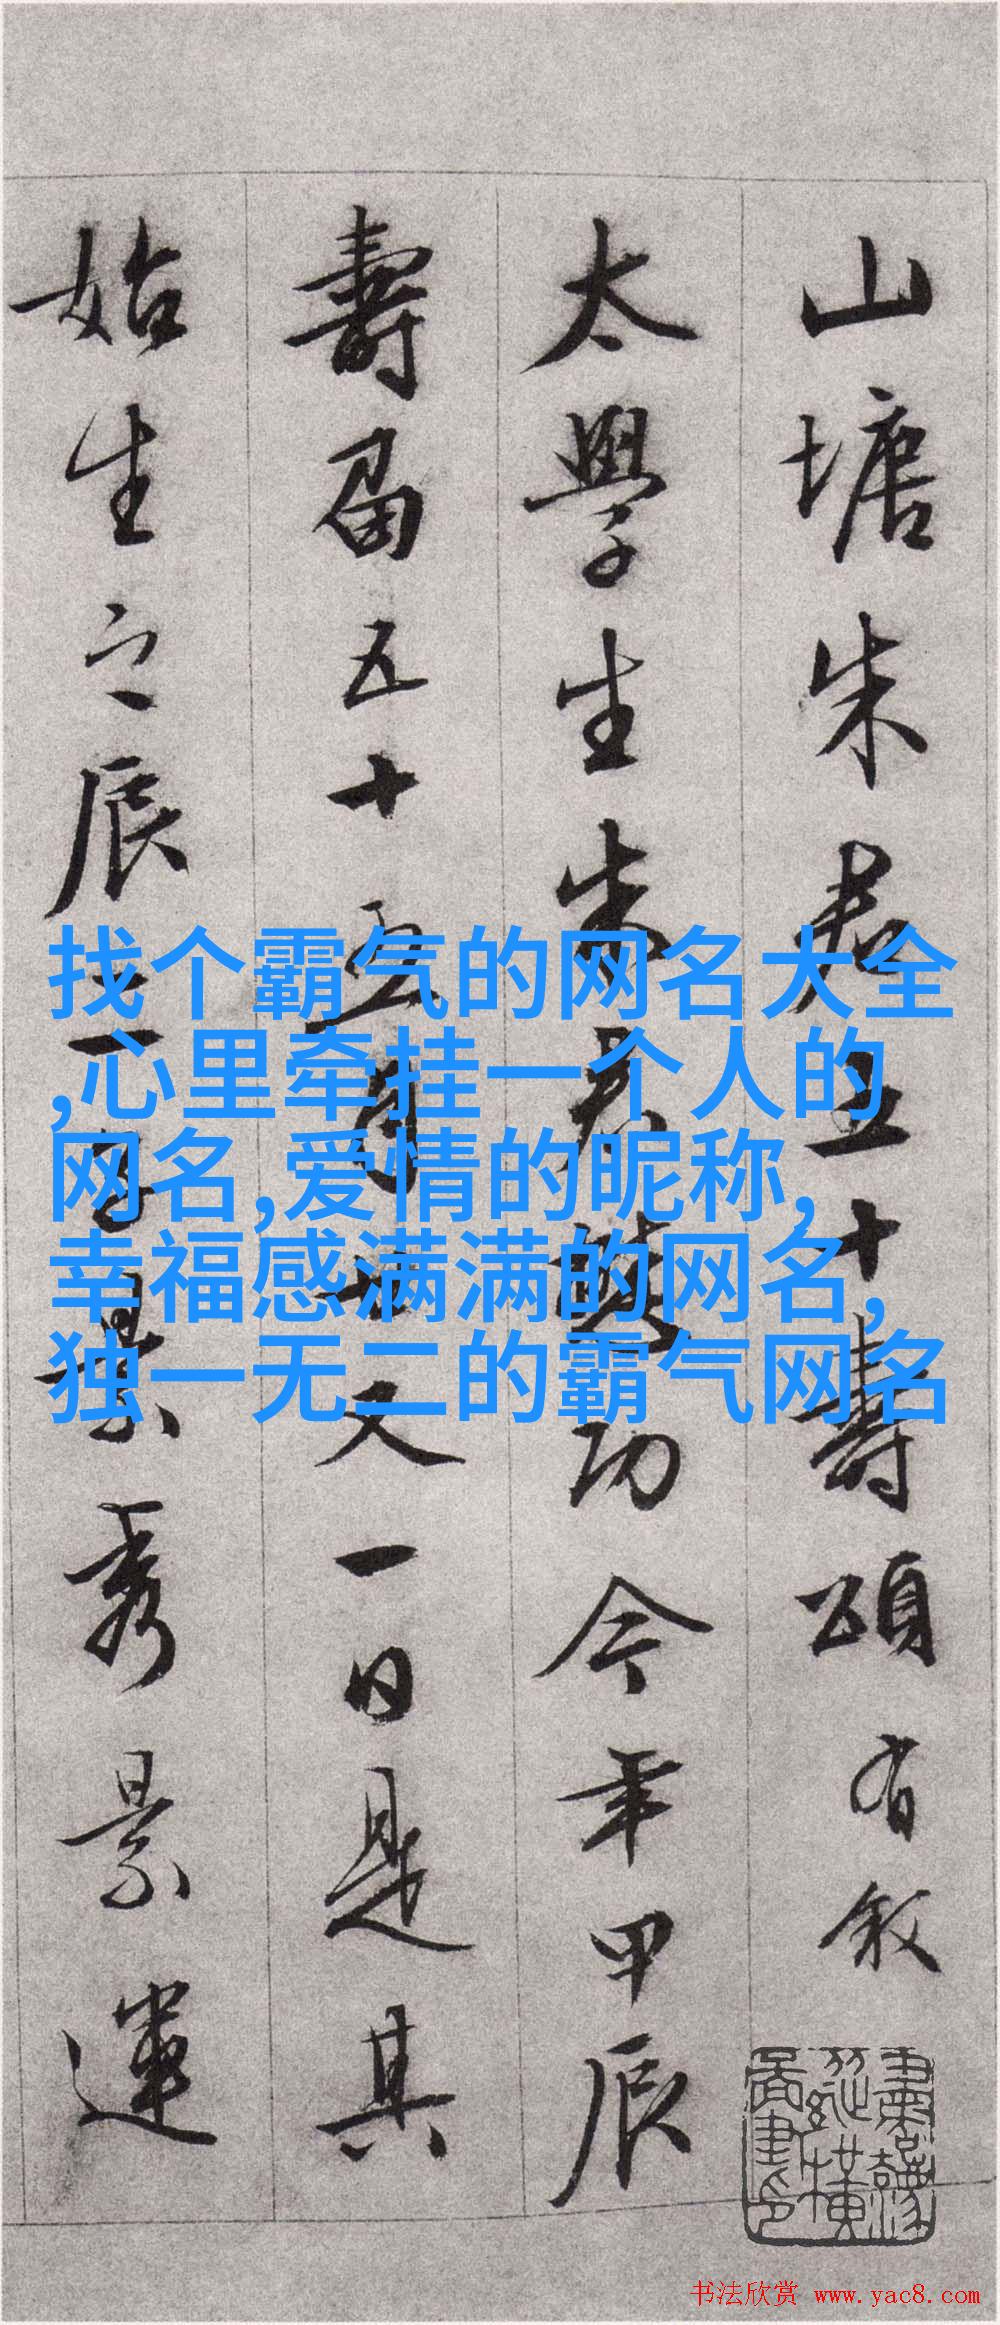 山塘朱君五十壽頌有叙
太學生朱君功今年甲辰
壽届五十月又一日是其
始生之辰秀景運
找个霸气的网名大全
,心里牵挂一个人的
网名,爱情的昵称,
幸福感满满的网名,
独一无二的霸气网名
书法欣赏 www.yac8.com